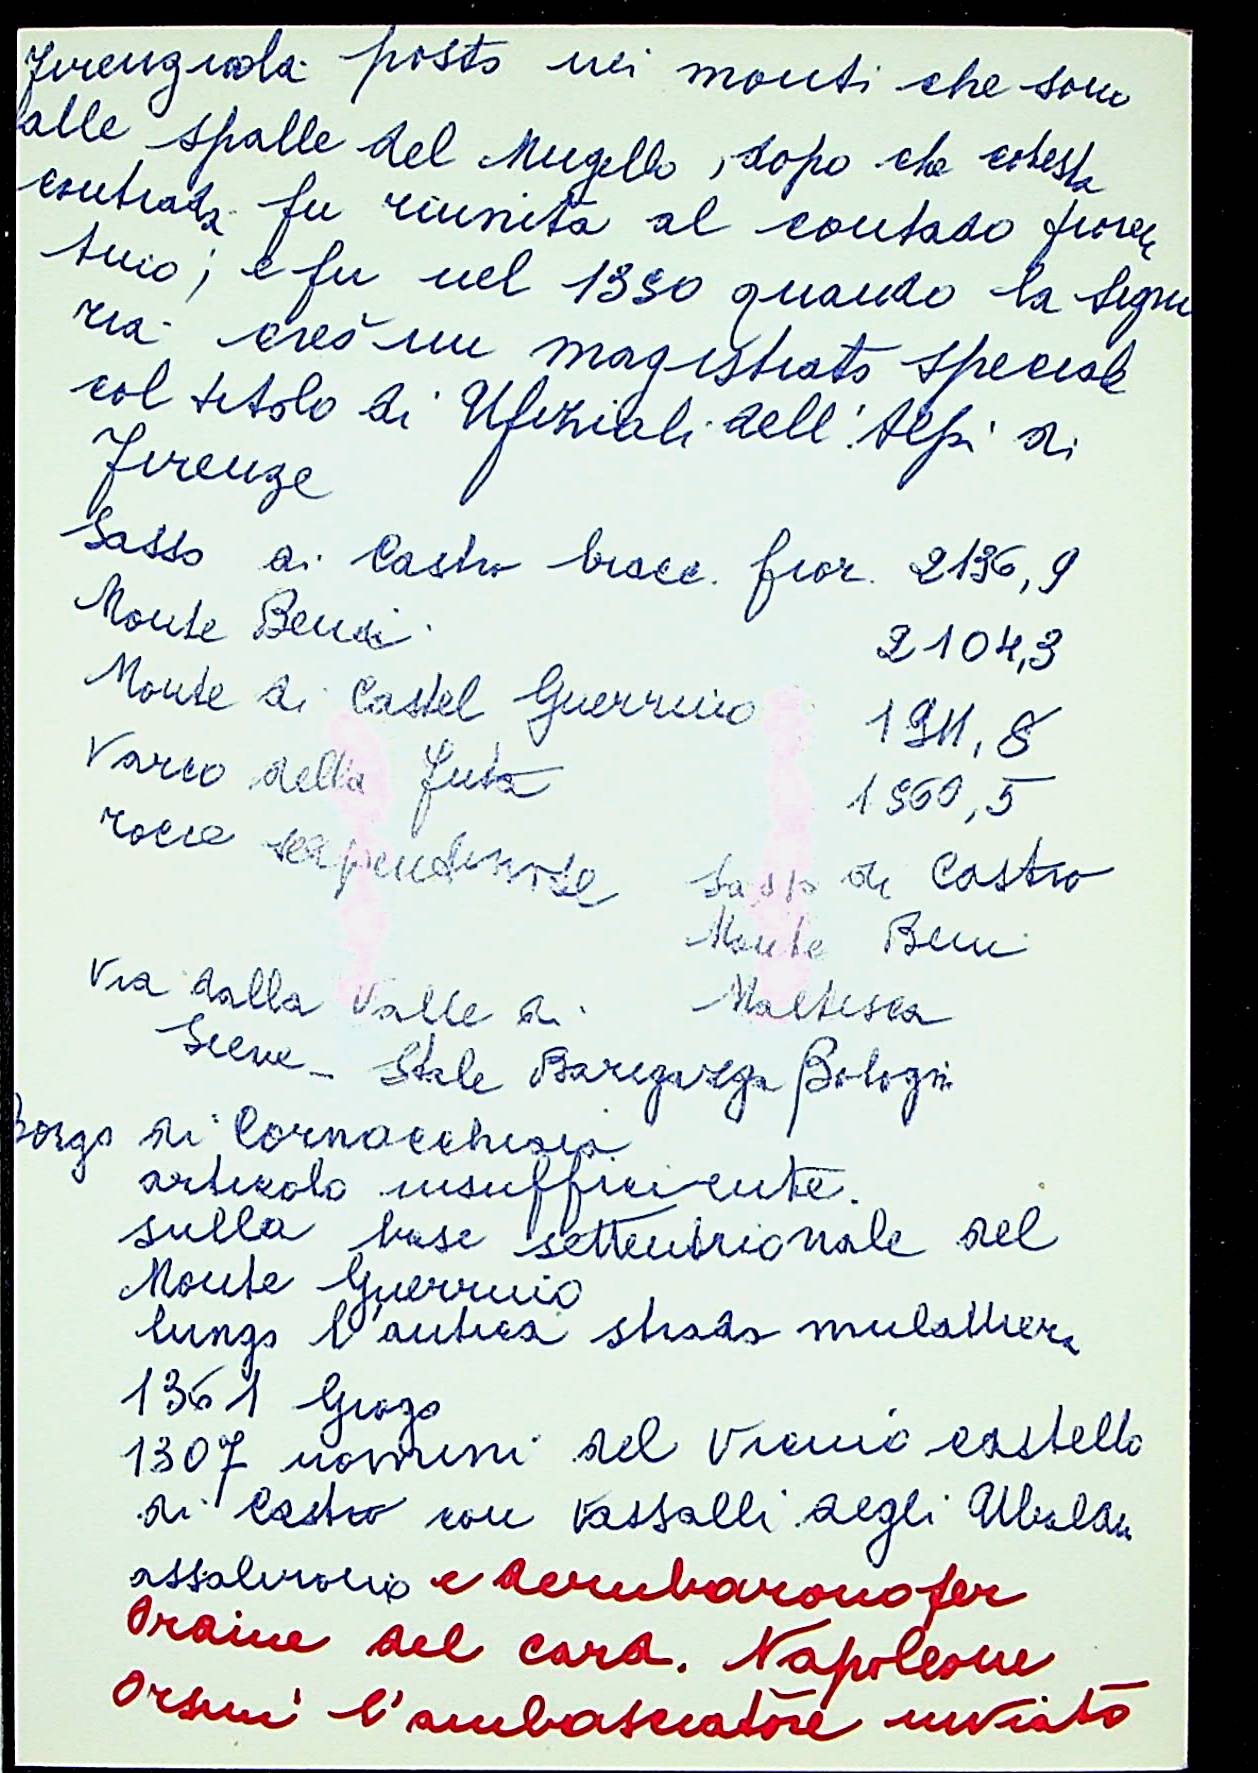 Firenzuola posto nei monti che sono
alle spalle del Mugello, dopo che cotesta
contrada fu riunita al contado fioren
tino; e fu nel 1390 quando la Signo
ria creò un magistrato speciale
col titolo di Ufiziali dell'Alpi di
Firenze
Sasso di Castro bracc. fior. 2136,9
Monte Beni 2104,3
Monte di Castel Guerrino 1911,8
Varco della Futa 1560,5
rocce serpentinose Sasso di Castro
Monte Beni
Via dalla Valle di Maltesca
Sieve - Stale Baregazza Bologn
Borgo di Cornacchiaia
articolo insufficiente.
sulla base settentrionale del
Monte Guerrino
lungo l'antica strada mulattiera
1361 Giogo
1307 uomini del vicino castello
di Castro con vassalli degli Ubaldin
assalirono e derubarono per
ordine del card. Napoleone
Orsini l'ambasciatore inviato